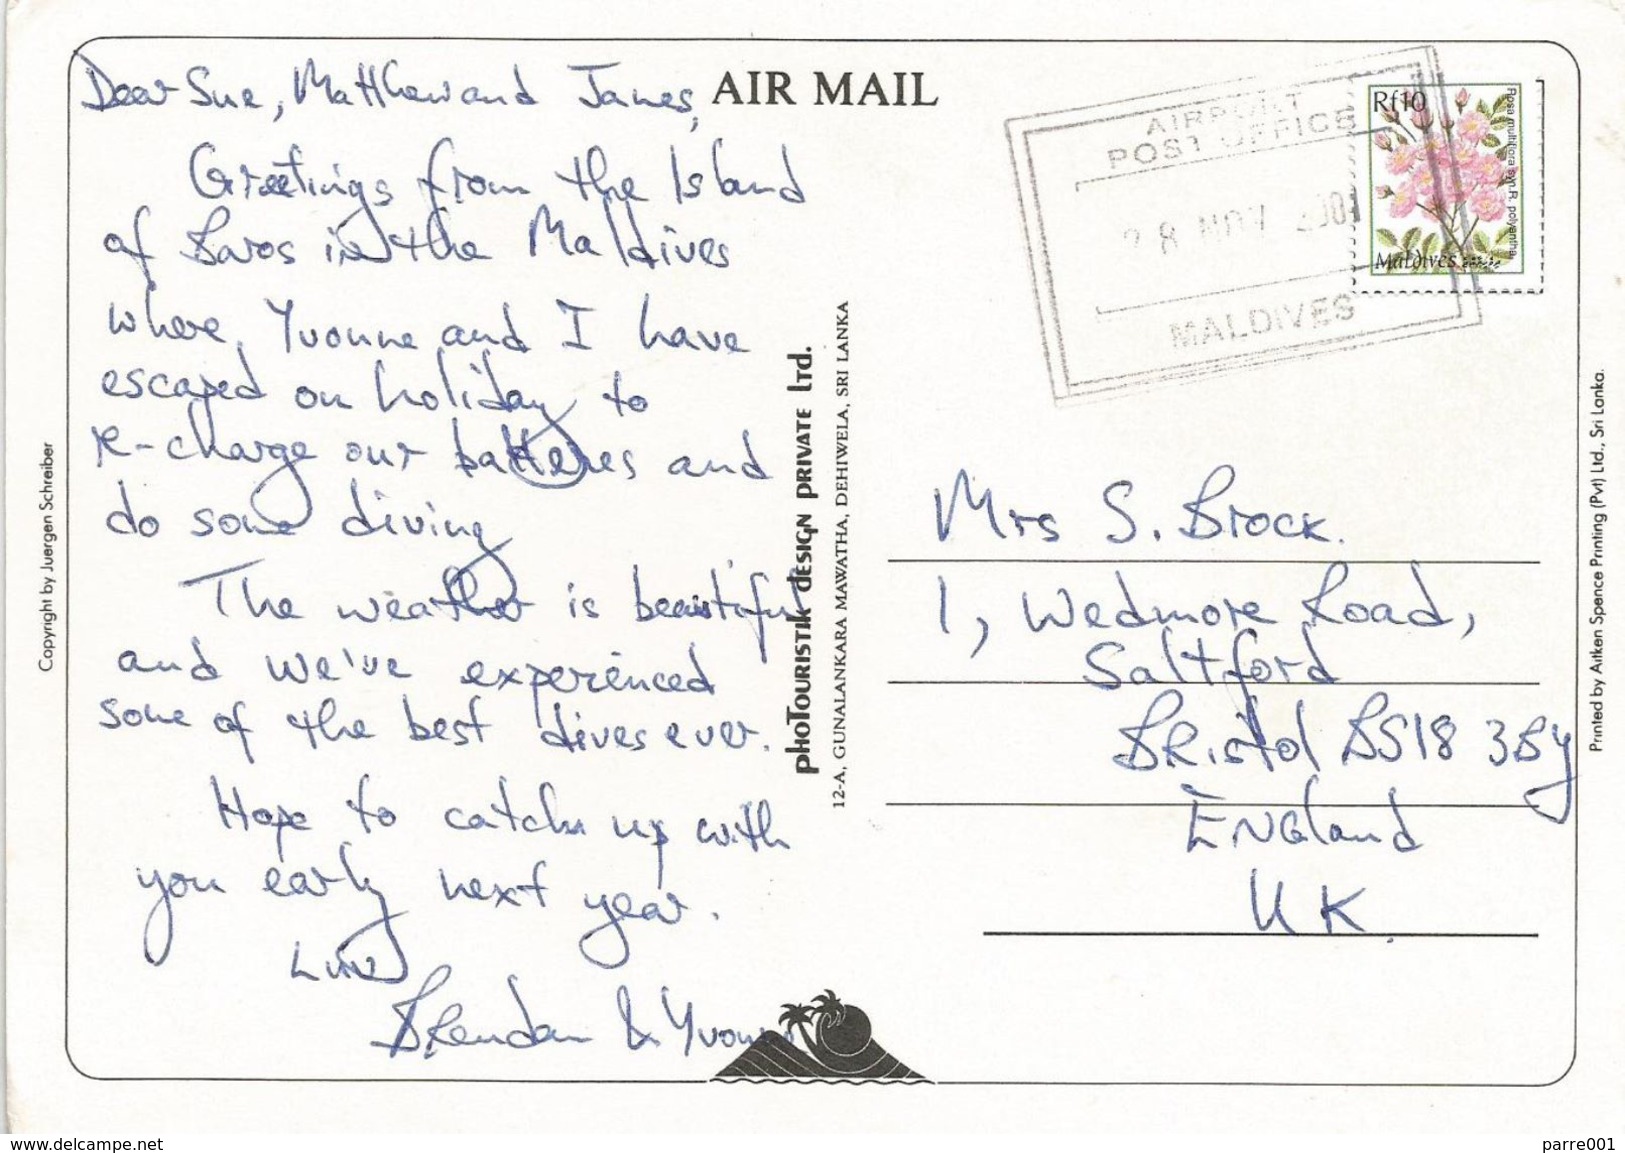 Dear Sue, Matthew and James,
Greetings from the Island
of Baros in the Maldives
where Yvonne and I have
escaped on holiday to
re-charge our batteries and
do some diving
The weather is beautiful
and we've experienced
some of the best dives ever.
Hope to catch up with
you early next year.
Luv
Brendan & Yvonne
AIR MAIL
AIRPORT
POST OFFICE
28 NOV 2001
MALDIVES
Rf10
Rosa multiflora syn R. polyantha
Maldives
Mrs S. Brock.
1, Wedmore Road,
Saltford
BRistol BS18 3By
ENGland
UK.
Copyright by Juergen Schreiber
phoTourisTik desiGn privatE LTd.
12-A, GUNALANKARA MAWATHA, DEHIWELA, SRI LANKA
Printed by Aitken Spence Printing (Pvt) Ltd., Sri Lanka.
www.delcampe.net
parre001